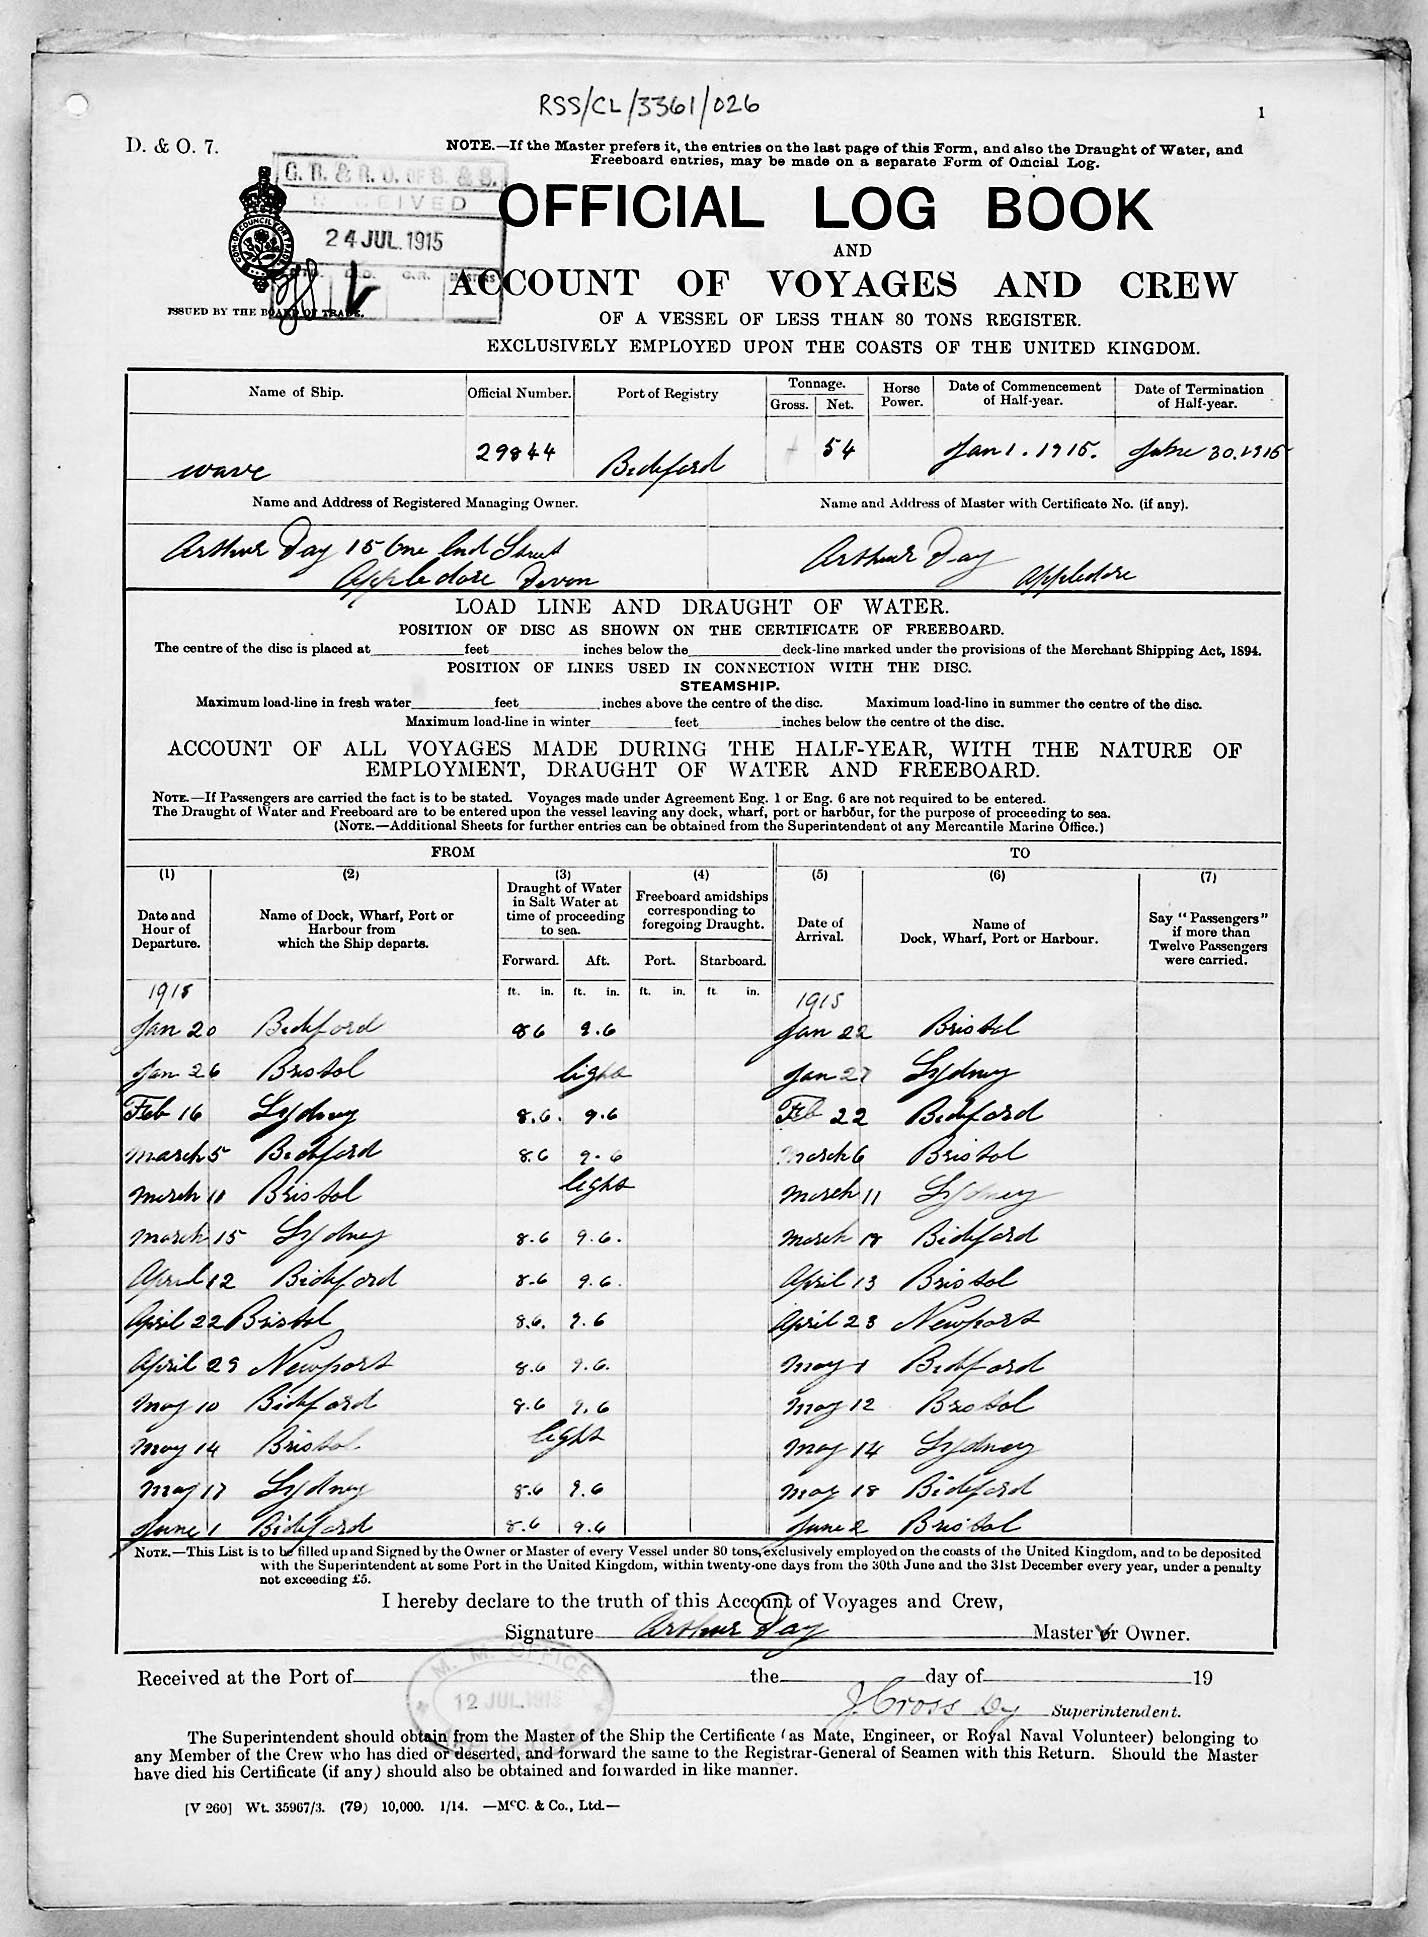 RSS/CL/3361/026
1
D. & O. 7.
NOTE.—If the Master prefers it, the entries on the last page of this Form, and also the Draught of Water, and
Freeboard entries, may be made on a separate Form of Official Log.
G. R. & R. O. OF S. & S.
RECEIVED
24 JUL. 1915
OFFICIAL LOG BOOK
AND
ACCOUNT OF VOYAGES AND CREW
ISSUED BY THE BOARD OF TRADE.
OF A VESSEL OF LESS THAN 80 TONS REGISTER.
EXCLUSIVELY EMPLOYED UPON THE COASTS OF THE UNITED KINGDOM.
Name of Ship. Official Number. Port of Registry Tonnage. Gross. Net. Horse Power. Date of Commencement of Half-year. Date of Termination of Half-year.
wave 29844 Bideford 54 Jan 1. 1915. June 30. 1915
Name and Address of Registered Managing Owner. Name and Address of Master with Certificate No. (if any).
Arthur Day 15 One End Street Arthur Day
Appledore Devon Appledore
LOAD LINE AND DRAUGHT OF WATER.
POSITION OF DISC AS SHOWN ON THE CERTIFICATE OF FREEBOARD.
The centre of the disc is placed at feet inches below the deck-line marked under the provisions of the Merchant Shipping Act, 1894.
POSITION OF LINES USED IN CONNECTION WITH THE DISC.
STEAMSHIP.
Maximum load-line in fresh water feet inches above the centre of the disc. Maximum load-line in summer the centre of the disc.
Maximum load-line in winter feet inches below the centre of the disc.
ACCOUNT OF ALL VOYAGES MADE DURING THE HALF-YEAR, WITH THE NATURE OF
EMPLOYMENT, DRAUGHT OF WATER AND FREEBOARD.
NOTE.—If Passengers are carried the fact is to be stated. Voyages made under Agreement Eng. 1 or Eng. 6 are not required to be entered.
The Draught of Water and Freeboard are to be entered upon the vessel leaving any dock, wharf, port or harbour, for the purpose of proceeding to sea.
(NOTE.—Additional Sheets for further entries can be obtained from the Superintendent of any Mercantile Marine Office.)
FROM TO
(1) (2) (3) (4) (5) (6) (7)
Date and Hour of Departure. Name of Dock, Wharf, Port or Harbour from which the Ship departs. Draught of Water in Salt Water at time of proceeding to sea. Freeboard amidships corresponding to foregoing Draught. Date of Arrival. Name of Dock, Wharf, Port or Harbour. Say "Passengers" if more than Twelve Passengers were carried.
Forward. Aft. Port. Starboard.
ft. in. ft. in. ft. in. ft. in.
1915 1915
Jan 20 Bideford 8 6 9.6 Jan 22 Bristol
Jan 26 Bristol light Jan 27 Lydney
Feb 16 Lydney 8.6. 9.6 Feb 22 Bideford
March 5 Bideford 8.6 9.6 March 6 Bristol
March 11 Bristol light March 11 Lydney
March 15 Lydney 8.6 9.6. March 18 Bideford
April 12 Bideford 8.6 9.6. April 13 Bristol
April 22 Bristol 8.6. 9.6 April 23 Newport
April 29 Newport 8.6 9.6. May 1 Bideford
May 10 Bideford 8.6 9.6 May 12 Bristol
May 14 Bristol light May 14 Lydney
May 17 Lydney 8.6 9.6 May 18 Bideford
June 1 Bideford 8.6 9.6 June 2 Bristol
NOTE.—This List is to be filled up and Signed by the Owner or Master of every Vessel under 80 tons, exclusively employed on the coasts of the United Kingdom, and to be deposited
with the Superintendent at some Port in the United Kingdom, within twenty-one days from the 30th June and the 31st December every year, under a penalty
not exceeding £5.
I hereby declare to the truth of this Account of Voyages and Crew,
Signature Arthur Day Master or Owner.
Received at the Port of the day of 19
M. M. OFFICE
12 JUL. 1915
J Cross Dy Superintendent.
The Superintendent should obtain from the Master of the Ship the Certificate (as Mate, Engineer, or Royal Naval Volunteer) belonging to
any Member of the Crew who has died or deserted, and forward the same to the Registrar-General of Seamen with this Return. Should the Master
have died his Certificate (if any) should also be obtained and forwarded in like manner.
[V 260] Wt. 35967/3. (79) 10,000. 1/14. —McC. & Co., Ltd.—